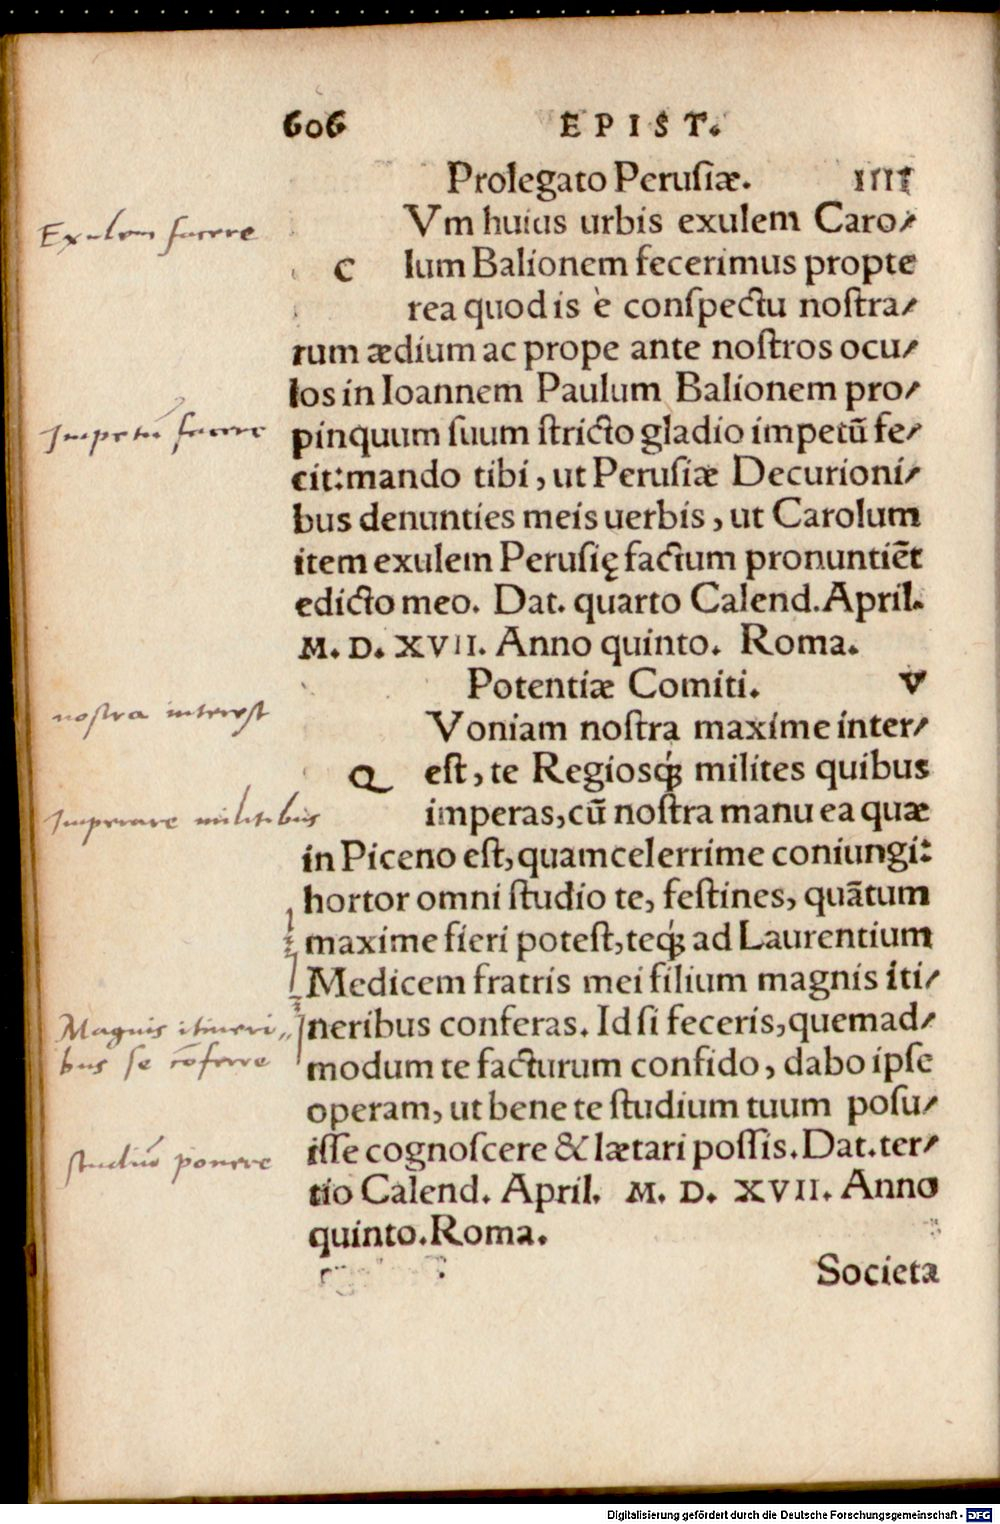 606 EPIST.
Prolegato Perusiæ. IIII
Exulem facere
Vm huius urbis exulem Caro⸗
C lum Balionem fecerimus propte
rea quod is è conſpectu noſtra⸗
rum ædium ac prope ante noſtros ocu⸗
los in Ioannem Paulum Balionem pro⸗
Impetū facere
pinquum ſuum ſtricto gladio impetū fe⸗
cit:mando tibi, ut Peruſiæ Decurioni⸗
bus denunties meis uerbis, ut Carolum
item exulem Peruſię factum pronuntiēt
edicto meo. Dat. quarto Calend. April.
M. D. XVII. Anno quinto. Roma.
Potentiæ Comiti. V
nostra interest
Voniam noſtra maxime inter⸗
Q eſt, te Regiosq́; milites quibus
Imperare militibus
imperas, cū noſtra manu ea quæ
in Piceno eſt, quamcelerrime coniungi:
hortor omni ſtudio te, feſtines, quātum
maxime fieri poteſt, teq́; ad Laurentium
Medicem fratris mei filium magnis iti⸗
Magnis itineri⸗
neribus conferas. Id ſi feceris, quemad⸗
bus se cōferre
modum te facturum confido, dabo ipſe
operam, ut bene te ſtudium tuum poſu⸗
studiū ponere
iſſe cognoſcere & lætari poſſis. Dat. ter⸗
tio Calend. April. M. D. XVII. Anno
quinto. Roma.
Societa
Digitalisierung gefördert durch die Deutsche Forschungsgemeinschaft - DFG